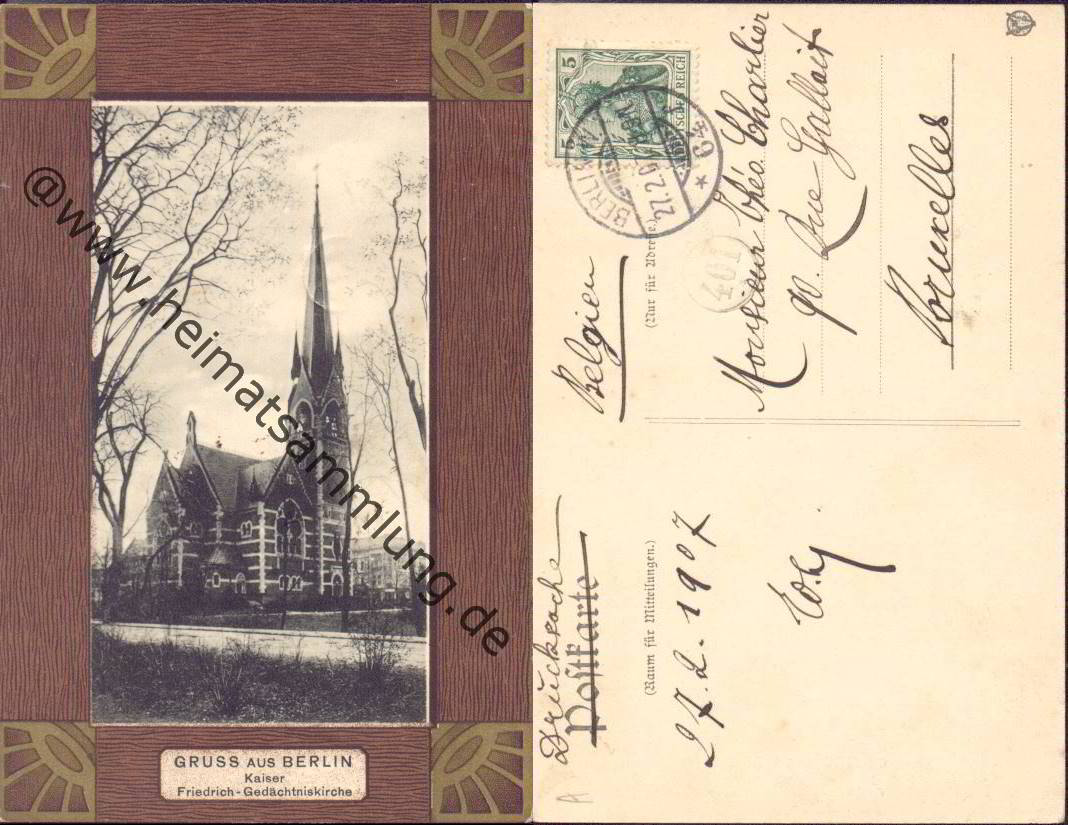 GRUSS AUS BERLIN
Kaiser
Friedrich-Gedächtniskirche
@www.heimatsammlung.de
Drucksache
Postkarte
Belgien
5 5
DEUTSCHES REICH
BERLIN
27.2.0
* 64
(Nur für Adresse.)
401
Monsieur Théo Charlier
Rue Gallait
Bruxelles
(Raum für Mitteilungen.)
27.2.1907